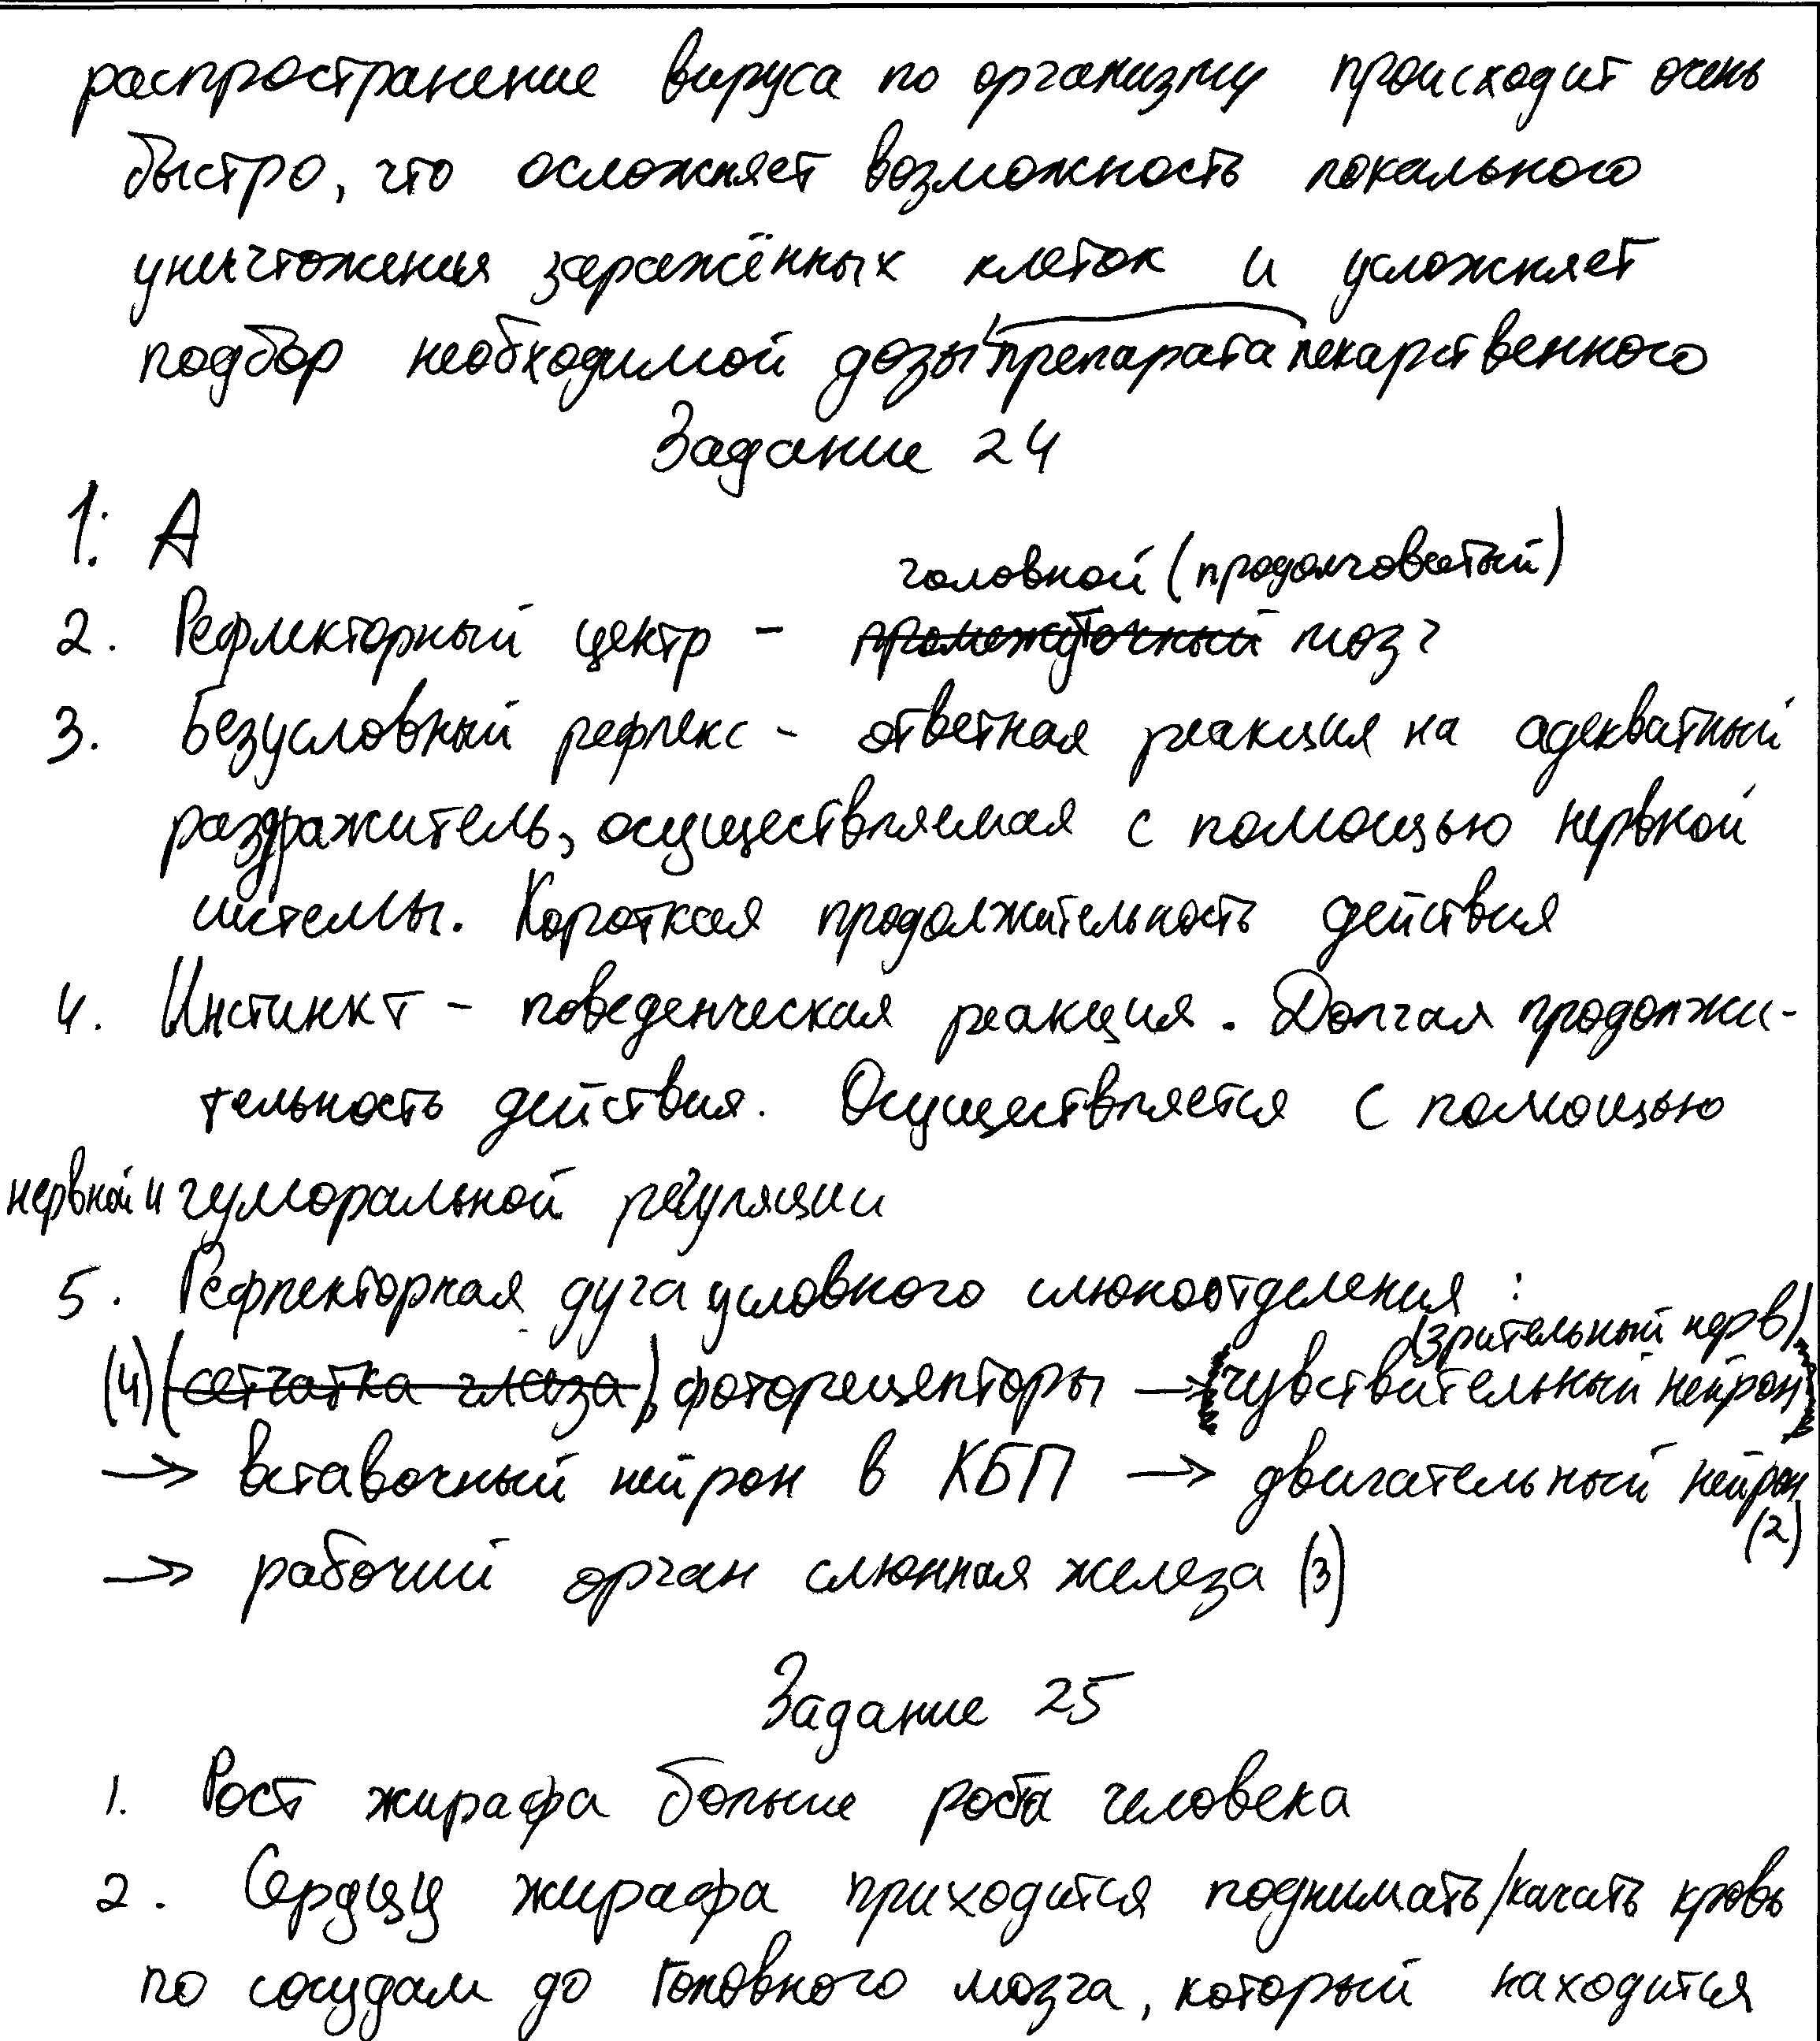 распространение вируса по организму происходит очень
быстро, что осложняет возможность локального
уничтожения заражённых клеток и усложняет
подбор необходимой дозы препарата лекарственного
Задание 24
1. А
головной (продолговатый)
2. Рефлекторный центр - промежуточный мозг
3. Безусловный рефлекс - ответная реакция на адекватный
раздражитель, осуществляемая с помощью нервной
системы. Короткая продолжительность действия
4. Инстинкт - поведенческая реакция. Долгая продолжи-
тельность действия. Осуществляется с помощью
нервной и гуморальной регуляции
5. Рефлекторная дуга условного слюноотделения :
(зрительный нерв)
(4) (сетчатка глаза) фоторецепторы → (чувствительный нейрон)
→ вставочный нейрон в КБП → двигательный нейрон
(2)
→ рабочий орган слюнная железа (3)
Задание 25
1. Рост жирафа больше роста человека
2. Сердцу жирафа приходится поднимать/качать кровь
по сосудам до головного мозга, который находится